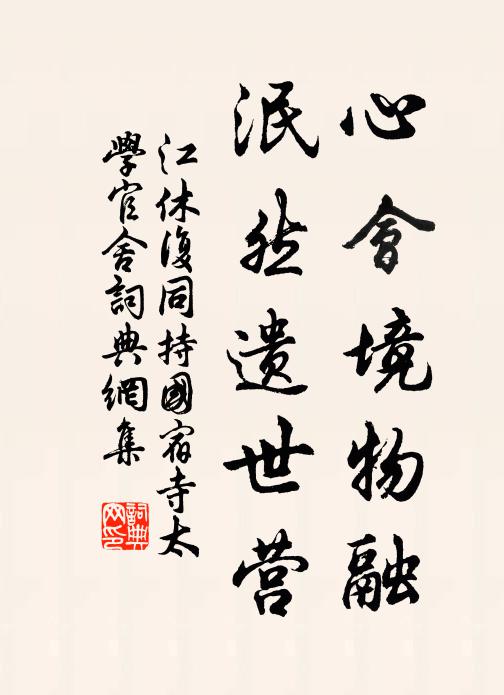 心會境物融
泯然遺世营
江休復同持國宿寺太
學官舍詞典網集
詞典
网印